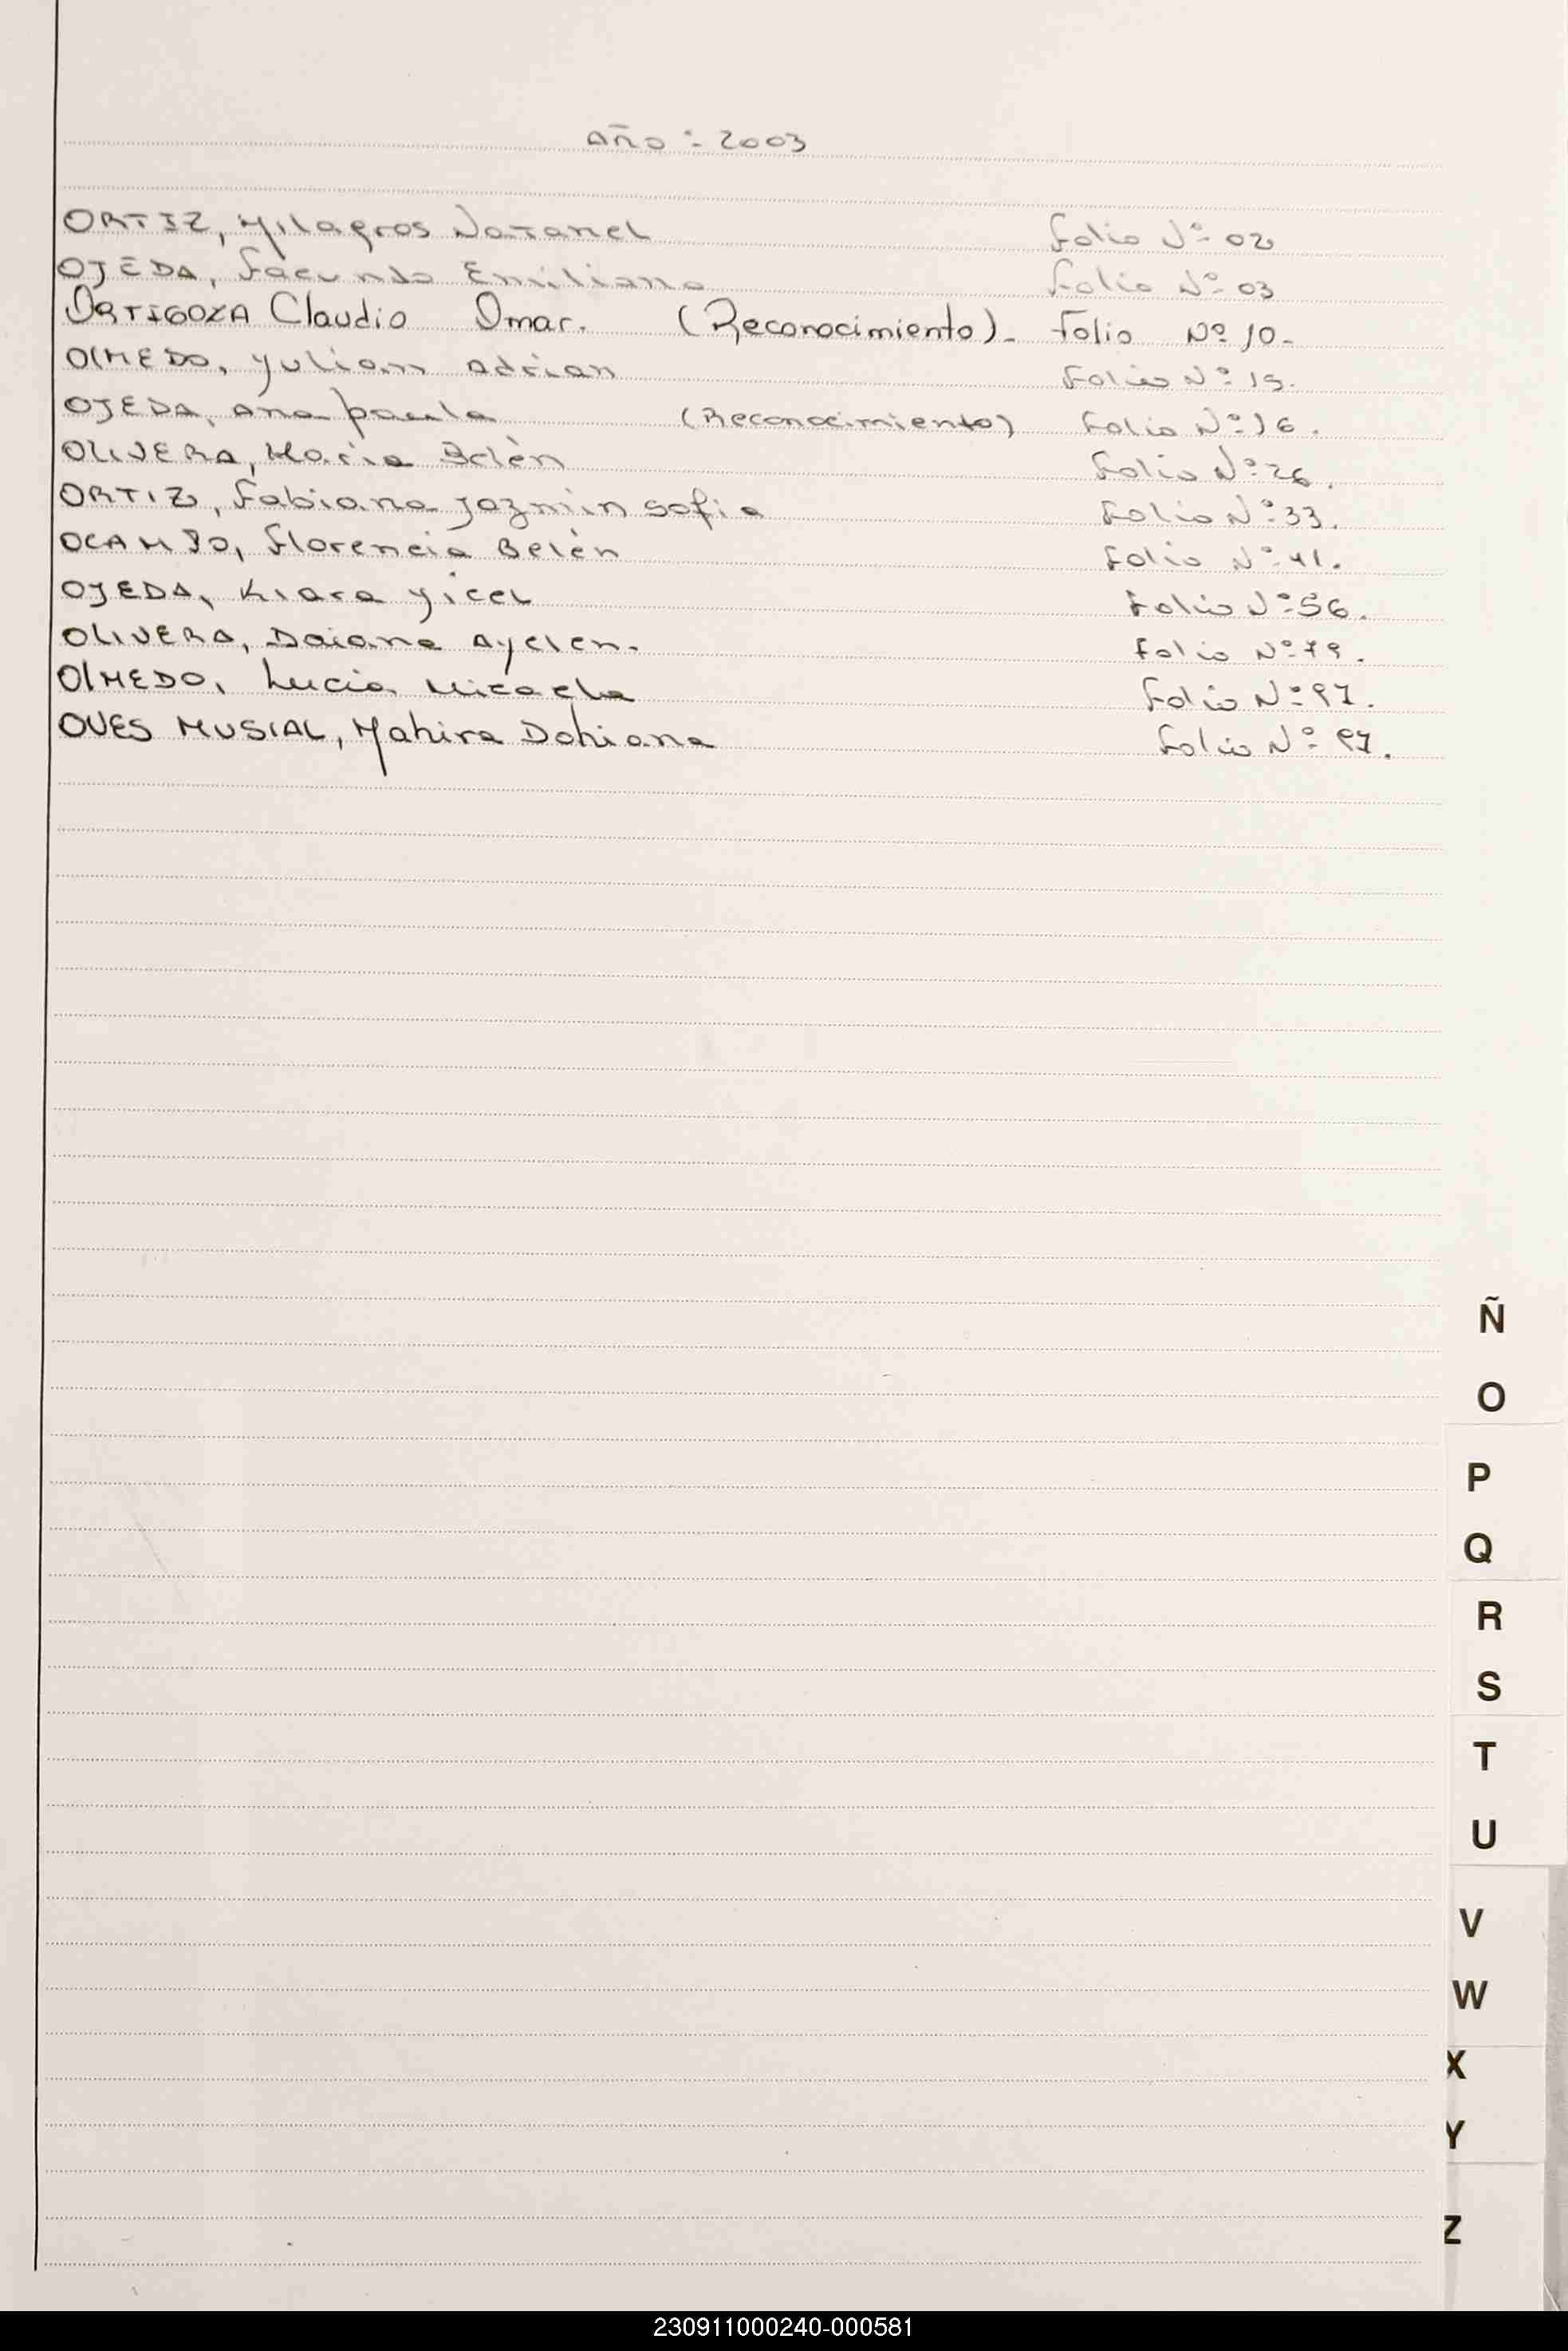 Año: 2003
ORTIZ, Milagros Natanel Folio Nº 02
OJEDA, Facundo Emiliano Folio Nº 03
ORTIGOZA Claudio Omar. (Reconocimiento). Folio Nº 10.
OLMEDO, Yulian Adrian Folio Nº 15.
OJEDA, Ana Paula (Reconocimiento) Folio Nº 16.
OLIVERA, Maria Belén Folio Nº 26.
ORTIZ, Fabiana Jazmin Sofia Folio Nº 33.
OCAMPO, Florencia Belén Folio Nº 41.
OJEDA, Kiara Yicel Folio Nº 56.
OLIVERA, Daiana Ayelen. Folio Nº 79.
OLMEDO, Lucia Micaela Folio Nº
OVES MUSIAL, Mahira Dohiana Folio Nº
Ñ
O
P
Q
R
S
T
U
V
W
X
Y
Z
230911000240-000581